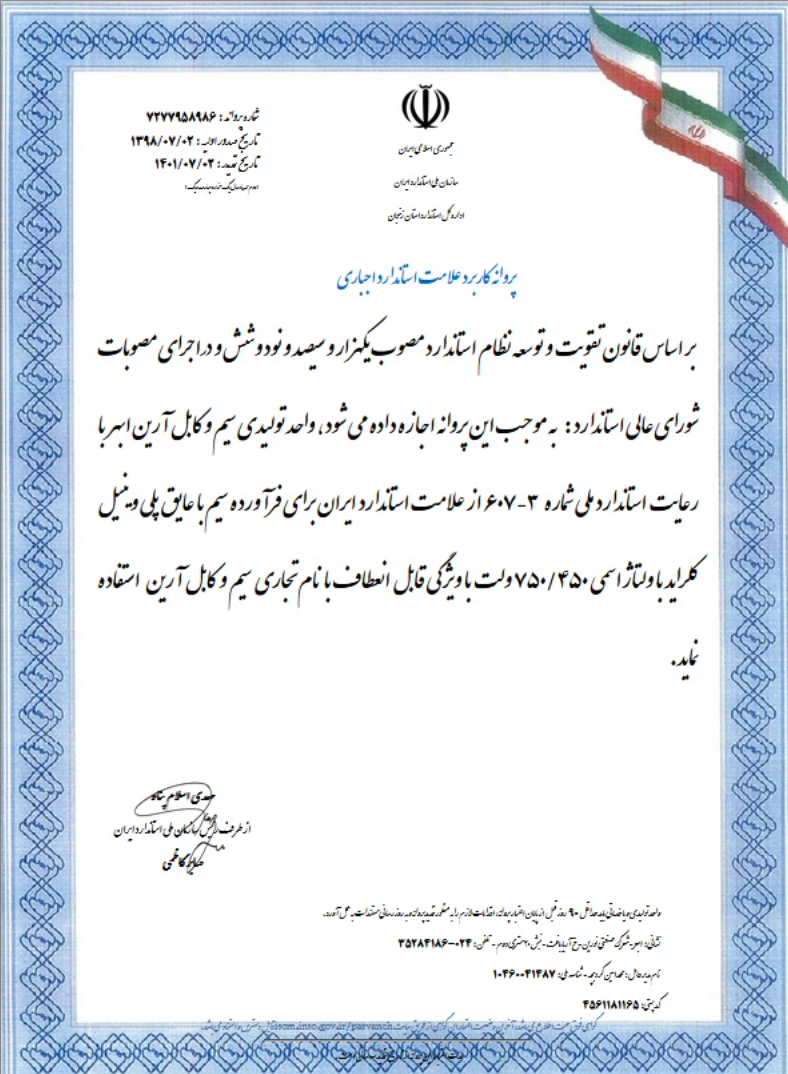 جمهوری اسلامی ایران
سازمان ملی استاندارد ایران
اداره کل استاندارد استان زنجان
شماره پروانه : ۷۲۷۷۹۵۸۹۸۶
تاریخ صدور اولیه : ۱۳۹۸/۰۷/۰۲
تاریخ تمدید : ۱۴۰۱/۰۷/۰۲
پروانه کاربرد علامت استاندارد اجباری
بر اساس قانون تقویت و توسعه نظام استاندارد مصوب یکهزار و سیصد و نود و شش و در اجرای مصوبات
شورای عالی استاندارد : به موجب این پروانه اجازه داده می شود، واحد تولیدی سیم و کابل آرین ابهر با
رعایت استاندارد ملی شماره ۳-۶۰۷ از علامت استاندارد ایران برای فرآورده سیم با عایق پلی وینیل
کلراید با ولتاژ اسمی ۷۵۰/۴۵۰ ولت با ویژگی قابل انعطاف با نام تجاری سیم و کابل آرین استفاده
نماید.
مهدی اسلام پناه
از طرف رئیس سازمان ملی استاندارد ایران
کاظمی
واحد تولیدی و یا خدماتی باید حداقل ۹۰ روز قبل از پایان اعتبار پروانه، اقدامات لازم را به منظور تمدید پروانه و به روز رسانی مستندات به عمل آورد.
نشانی : ابهر - شهرک صنعتی نورین - خ آریابافت - نبش ۲۰متری دوم - تلفن : ۰۲۴-۳۵۲۸۴۱۸۶
نام مدیرعامل : محمدامین - شناسه ملی : ۱۰۴۶۰۰۴۱۴۸۷
کد پستی : ۴۵۶۱۱۸۱۱۶۵